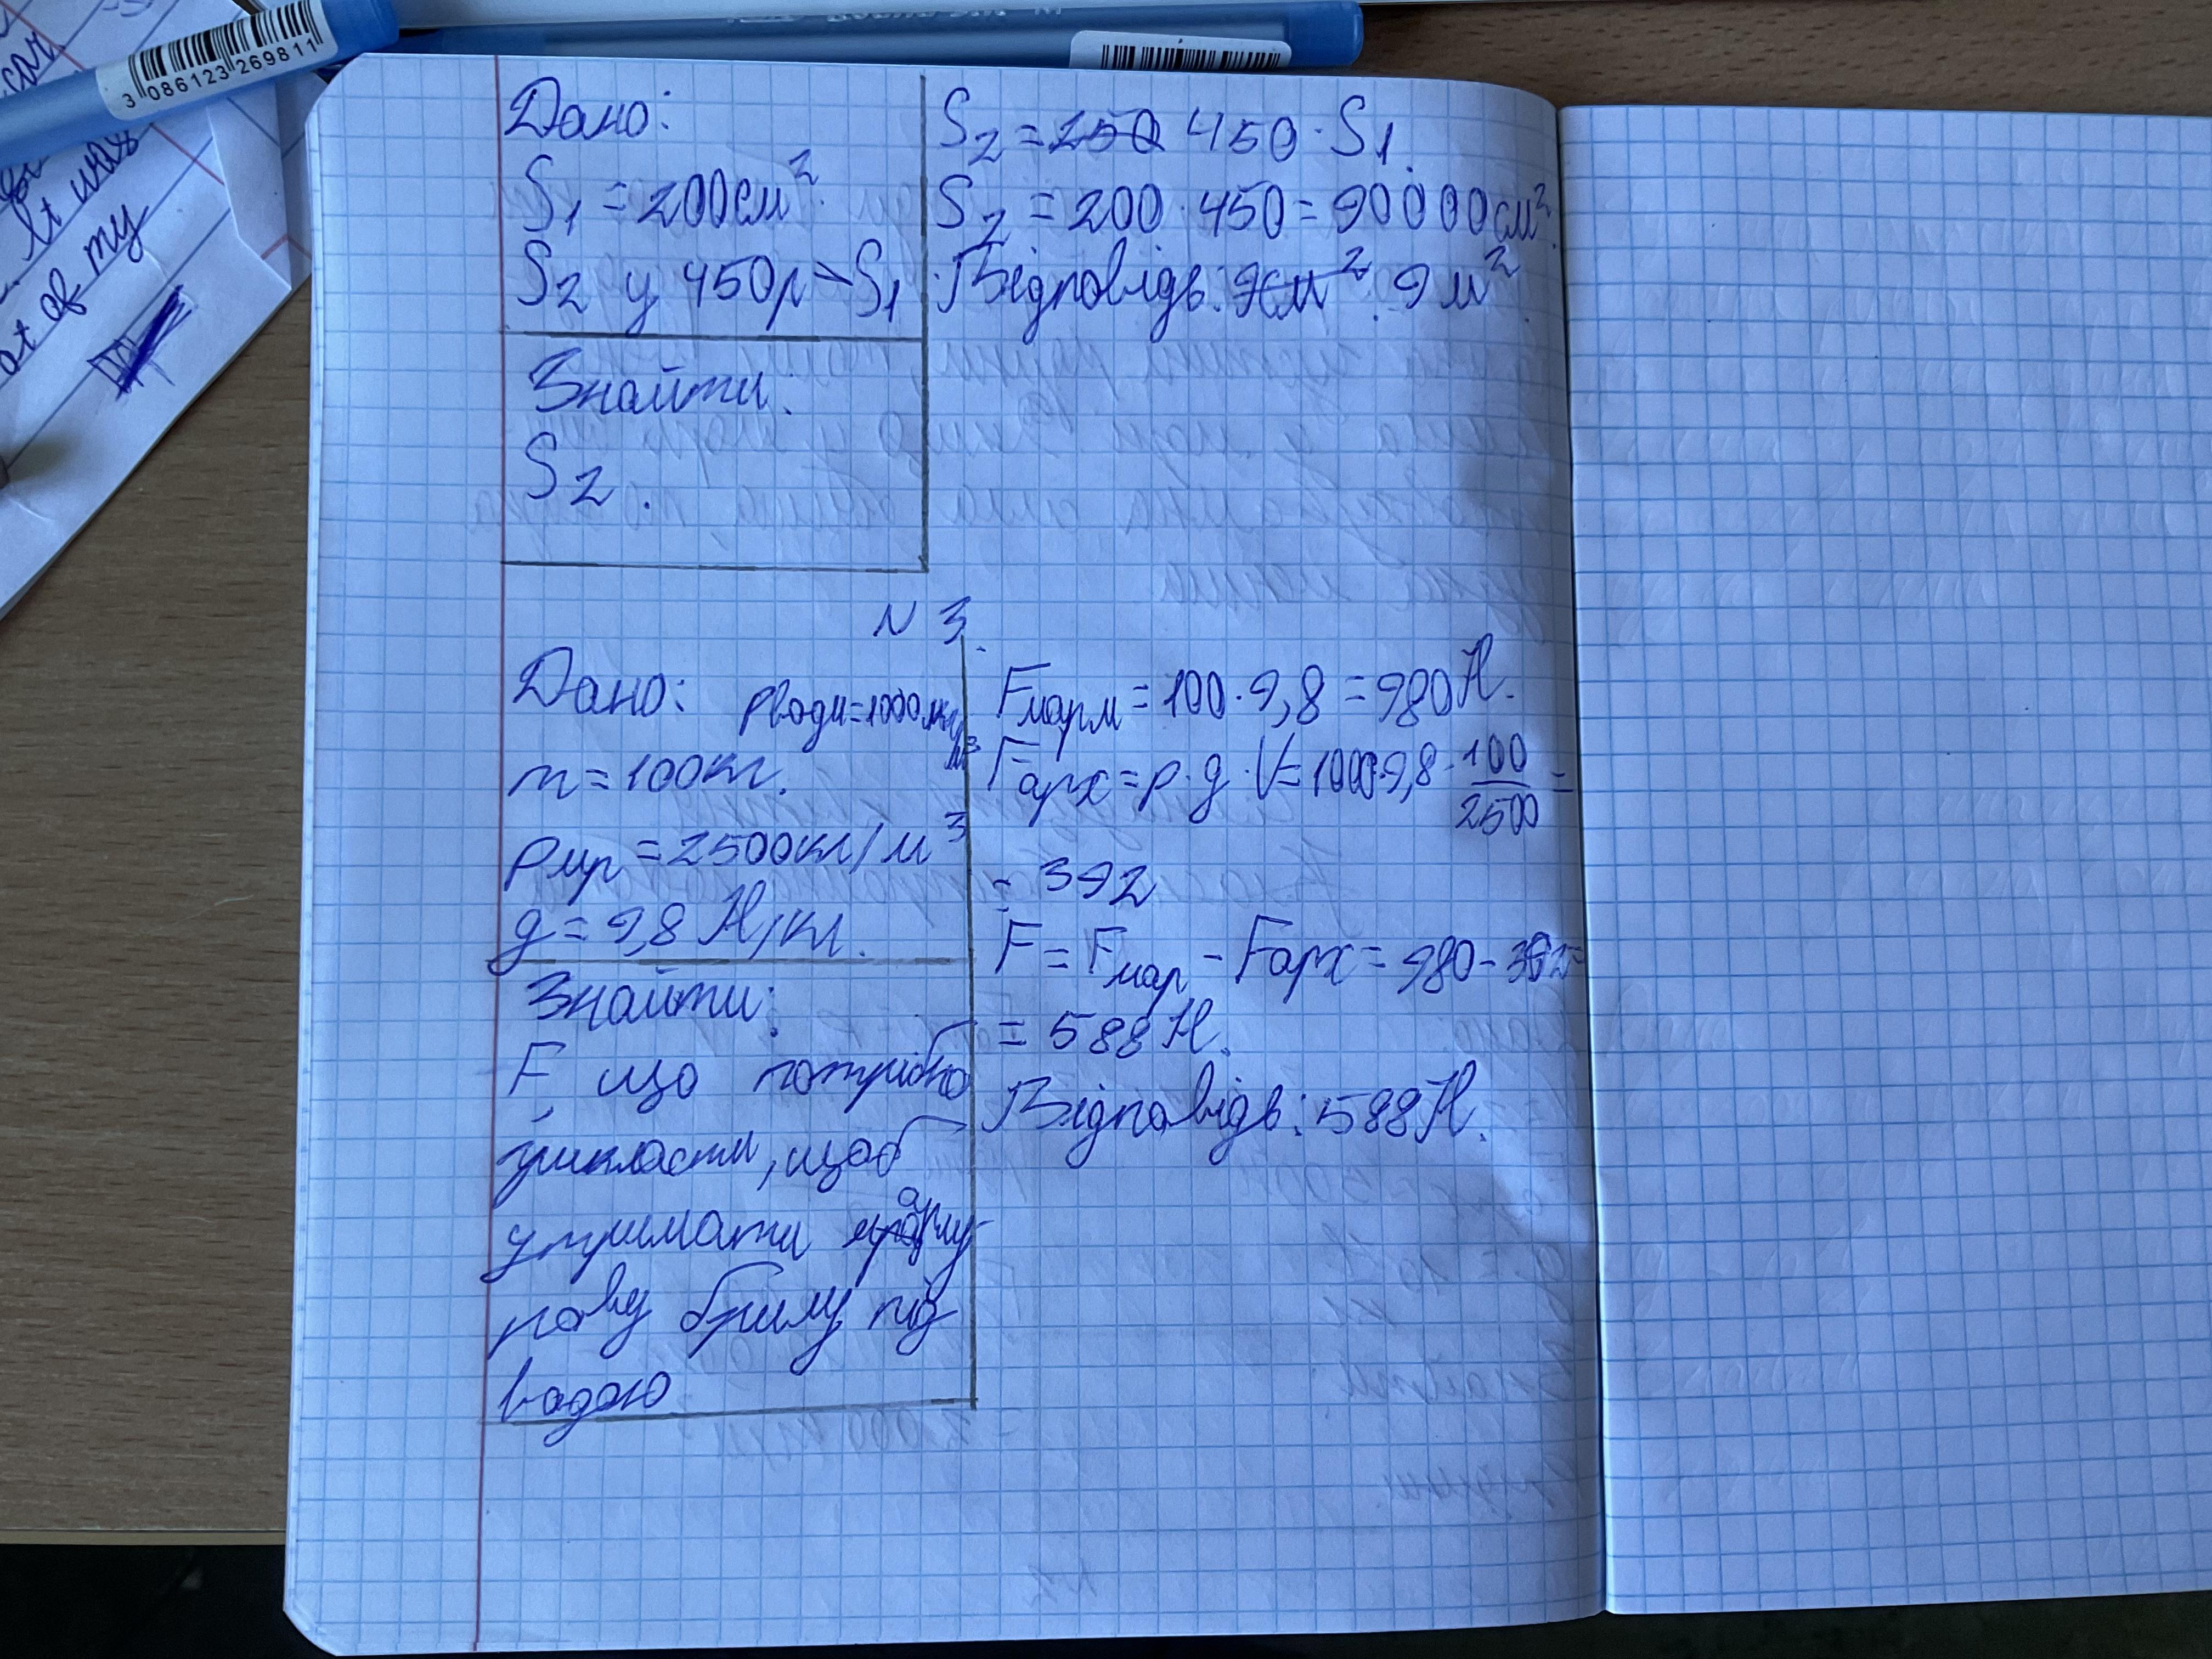 3 086123 269811
It was
at of my
Дано:
S₁ = 200см².
S₂ у 450р > S₁
Знайти:
S₂.
S₂ = 250 450 · S₁.
S₂ = 200 · 450 = 90000см².
Відповідь: 9см². 9м².
N 3.
Дано: ρводи=1000 кг/м³
m = 100кг.
ρмр = 2500кг/м³
g = 9,8 Н/кг.
Знайти:
F, що потрібно
прикласти, щоб
утримати мармур
нову брилу під
водою
Fмарм = 100 · 9,8 = 980Н.
Fарх = ρ · g · V = 1000·9,8 · 100/2500 =
= 392
F = Fмар - Fарх = 980 - 392 =
= 588 Н.
Відповідь: 588Н.